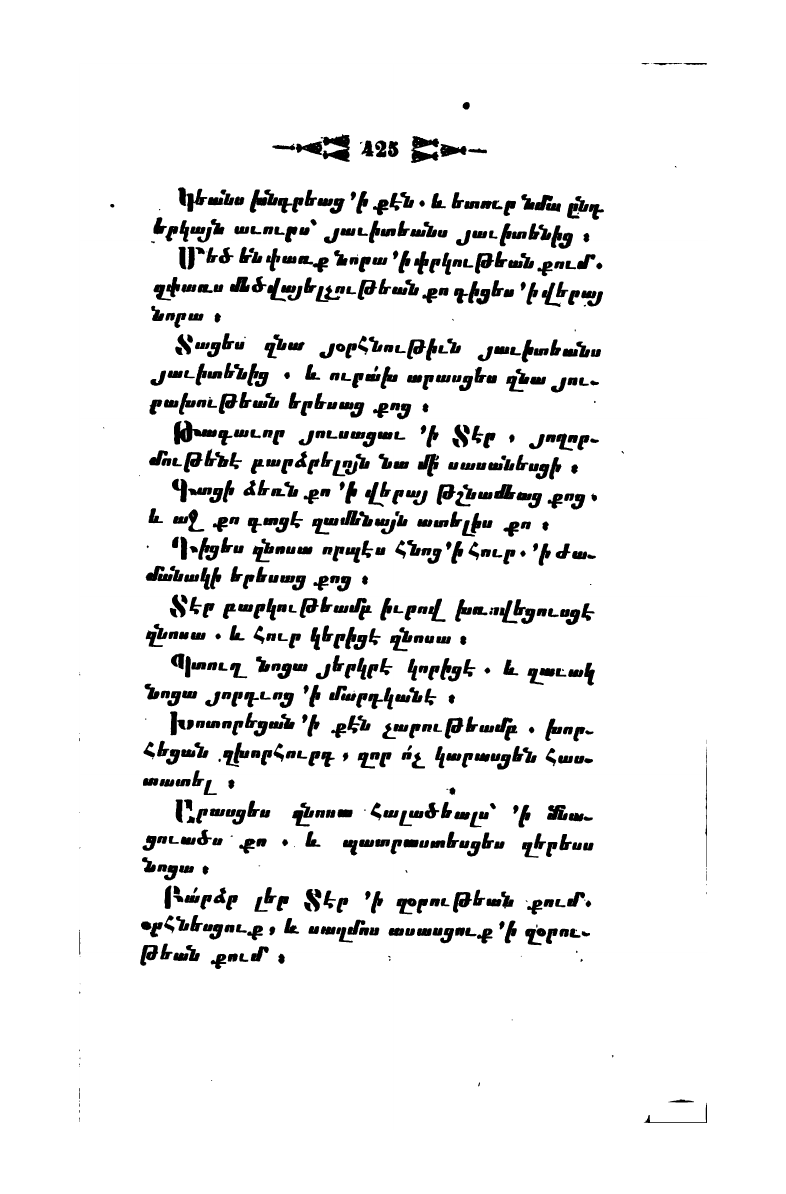 425
Կեանս խնդրեաց ՚ի քէն . և ետուր նմա ընդ
երկայն աւուրս՝ յաւիտեանս յաւիտենից ։
Մեծ են փառք նորա ՚ի փրկութեան քում .
զփառս մեծվայելչութեան քո դիցես ՚ի վերայ
նորա ։
Տացես զնա յօրհնութիւն յաւիտեանս
յաւիտենից . և ուրախ արասցես զնա յու-
րախութեան երեսաց քոց ։
Թագաւոր յուսացաւ ՚ի Տէր , յողոր-
մութենէ բարձրելոյն նա մի սասանեսցի ։
Գտցի ձեռն քո ՚ի վերայ թշնամեաց քոց .
և աջ քո գտցէ զամենայն ատելիս քո ։
Դիցես զնոսա որպէս հնոց ՚ի հուր . ՚ի ժա-
մանակի երեսաց քոց ։
Տէր բարկութեամբ իւրով խռովեցուսցէ
զնոսա . և հուր կերիցէ զնոսա ։
Պտուղ նոցա յերկրէ կորիցէ . և զաւակ
նոցա յորդւոց ՚ի մարդկանէ ։
Խոտորեցան ՚ի քէն չարութեամբ . խոր-
հեցան զխորհուրդ , զոր ո՛չ կարասցեն հաս-
տատել ։
Արասցես զնոսա հալածեալս՝ ՚ի մնա-
ցուածս քո . և պատրաստեսցես զերեսս
նոցա ։
Բա՛րձր լեր Տէր ՚ի զօրութեան քում .
օրհնեսցուք , և սաղմոս ասասցուք ՚ի զօրու-
թեան քում ։